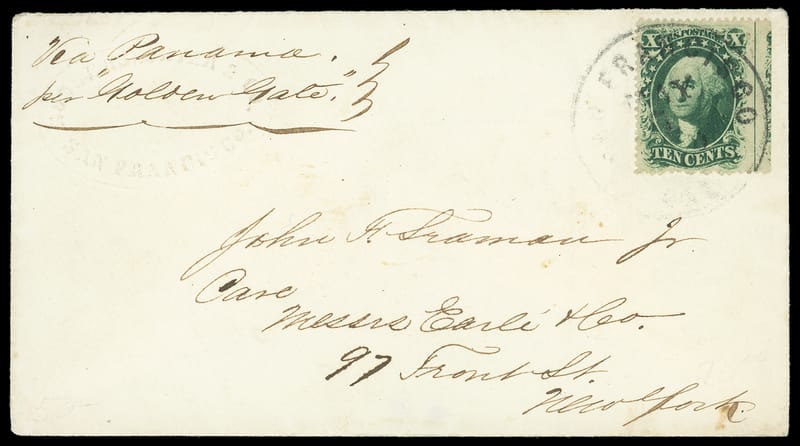 Via Panama.
per "Golden Gate."
SAN FRANCISCO.
X U.S. POSTAGE X
SAN FRANCISCO
TEN CENTS.
John F. Seaman Jr
Care
Messrs Earle & Co.
97 Front St.
New York.